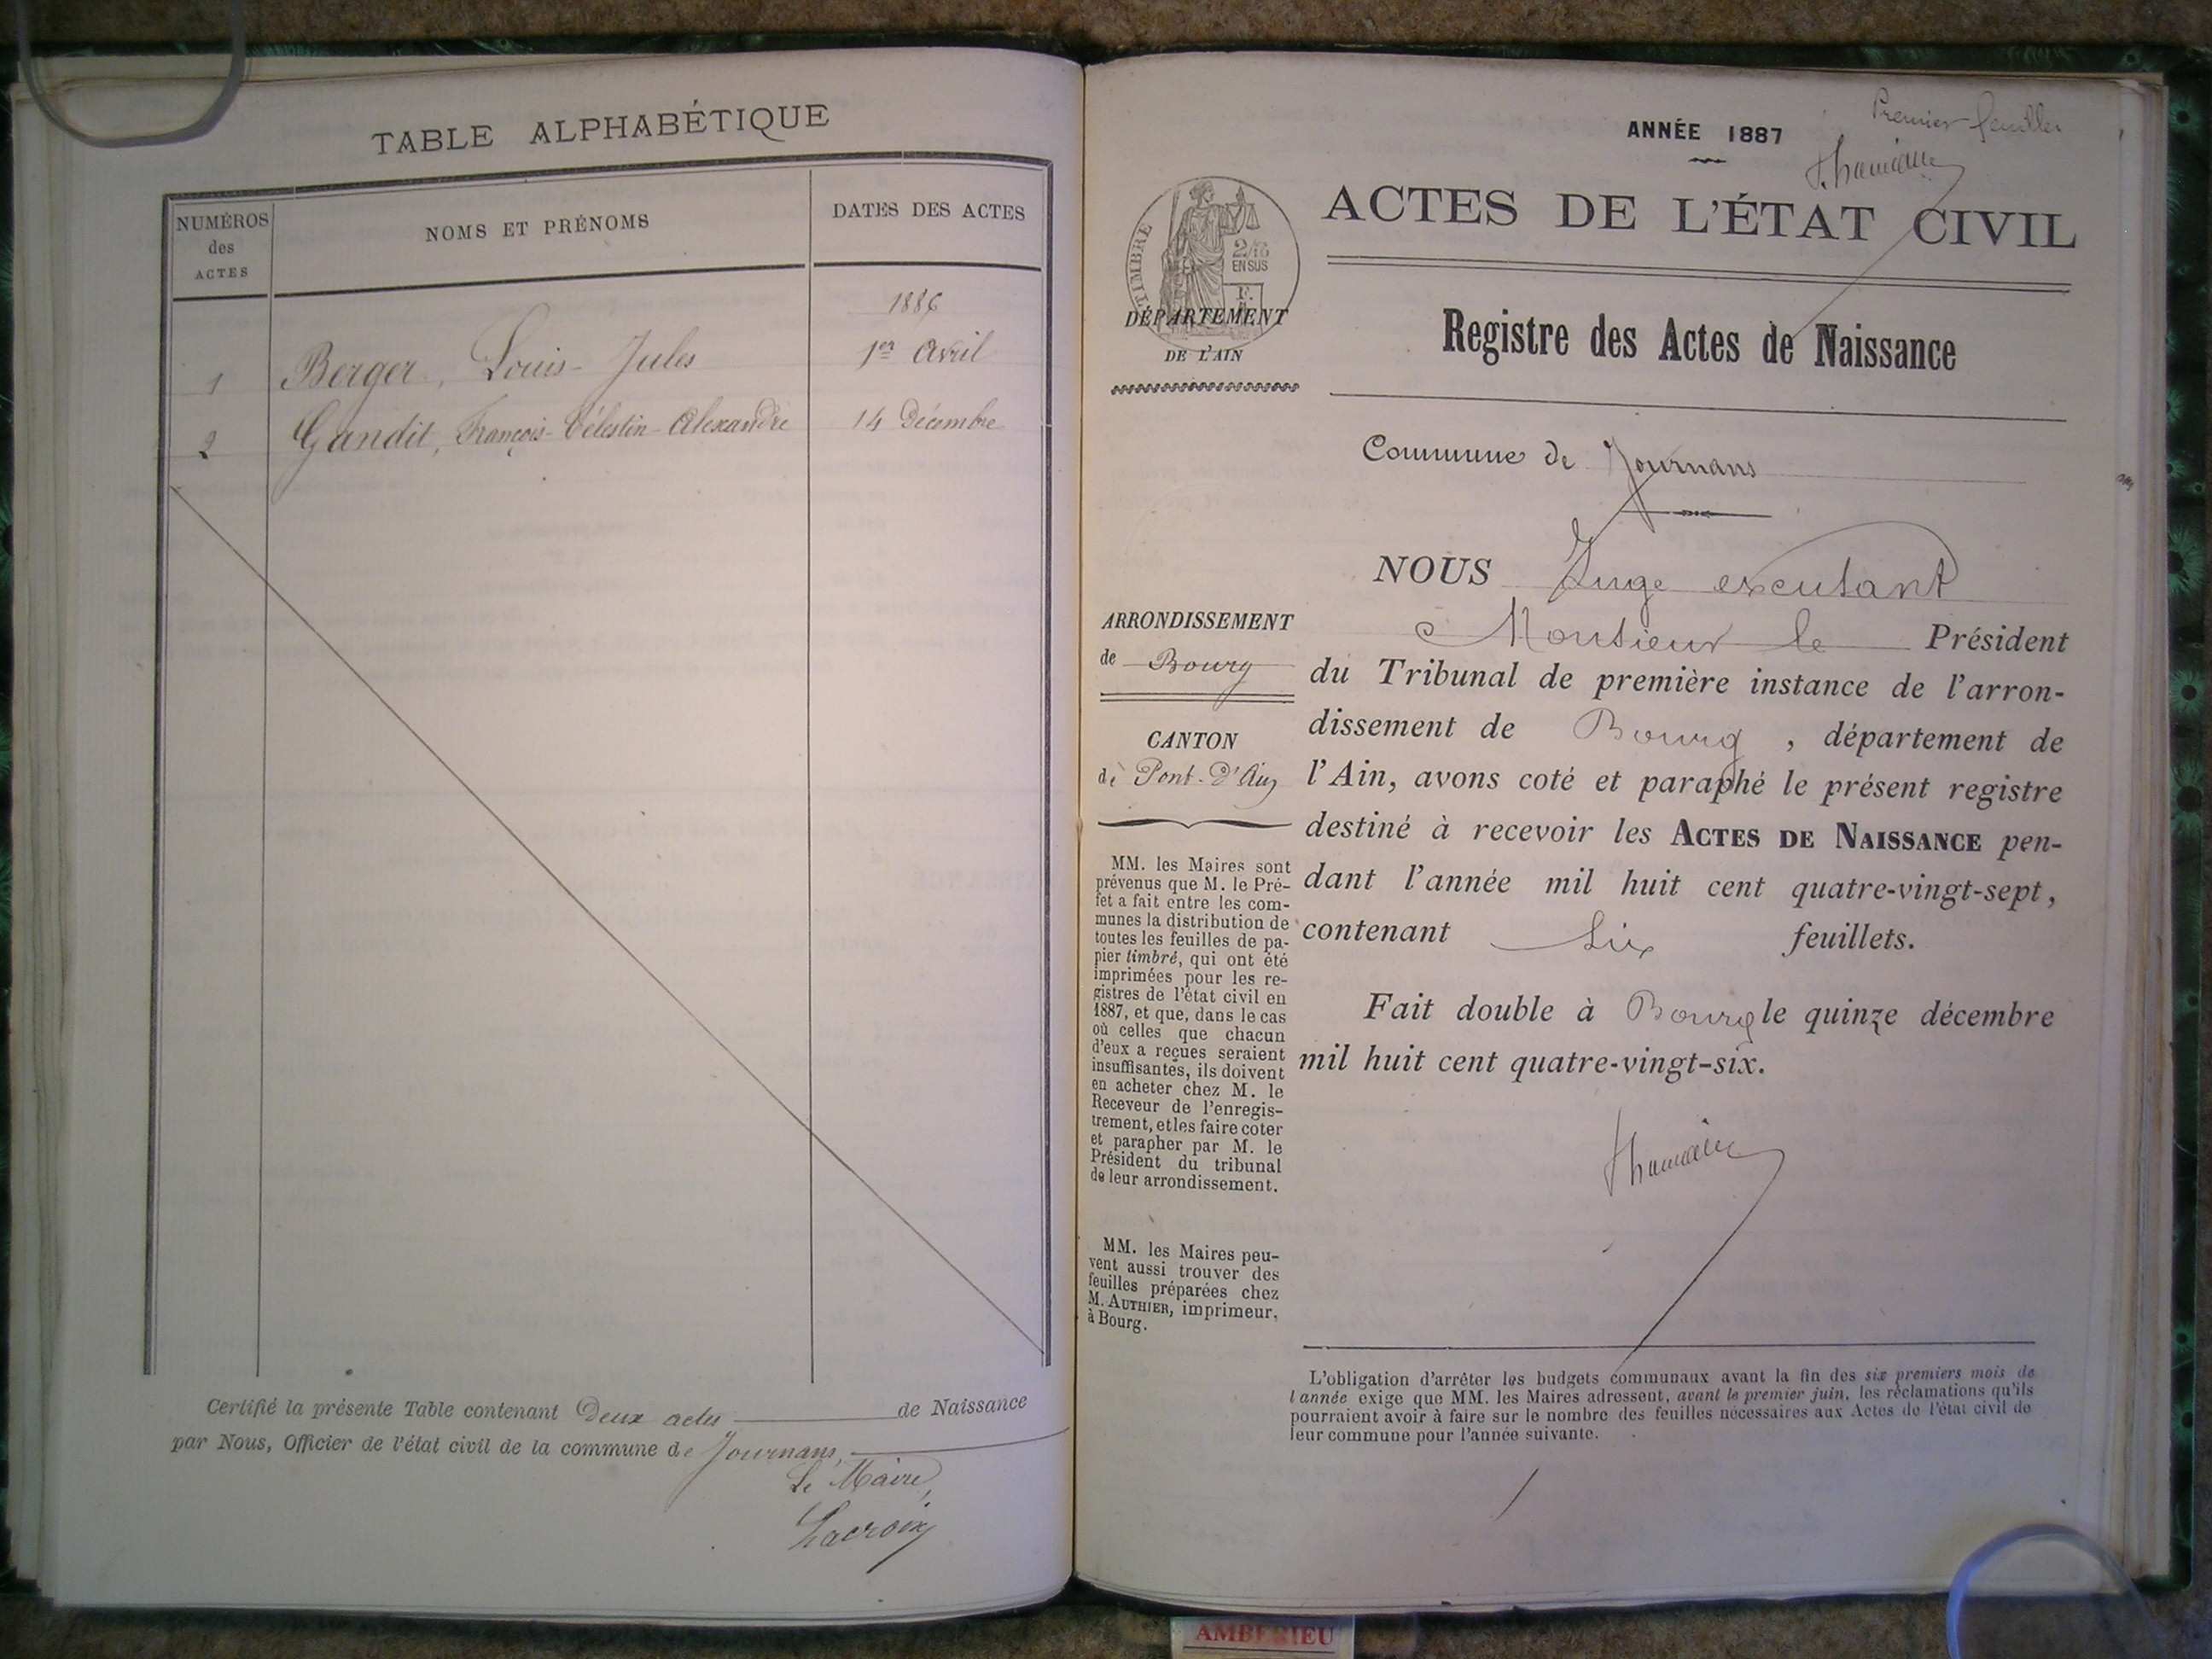 TABLE ALPHABÉTIQUE
NUMÉROS des ACTES
NOMS ET PRÉNOMS
DATES DES ACTES
1886
1 Berger, Louis-Jules 1er Avril
2 Gandit, François-Célestin-Alexandre 14 Décembre
Certifié la présente Table contenant Deux actes de Naissance
par Nous, Officier de l'état civil de la commune de Journans,
Le Maire,
Lacroix
Premier feuillet
ANNÉE 1887
ACTES DE L'ÉTAT CIVIL
TIMBRE
2/10
EN SUS
F.
DÉPARTEMENT
DE L'AIN
Registre des Actes de Naissance
Commune de Journans
ARRONDISSEMENT
de Bourg
CANTON
de Pont-d'Ain
MM. les Maires sont
prévenus que M. le Pré-
fet a fait entre les com-
munes la distribution de
toutes les feuilles de pa-
pier timbré, qui ont été
imprimées pour les re-
gistres de l'état civil en
1887, et que, dans le cas
où celles que chacun
d'eux a reçues seraient
insuffisantes, ils doivent
en acheter chez M. le
Receveur de l'enregis-
trement, et les faire coter
et parapher par M. le
Président du tribunal
de leur arrondissement.
MM. les Maires peu-
vent aussi trouver des
feuilles préparées chez
M. AUTHIER, imprimeur,
à Bourg.
NOUS Juge
Monsieur le Président
du Tribunal de première instance de l'arron-
dissement de Bourg, département de
l'Ain, avons coté et paraphé le présent registre
destiné à recevoir les ACTES DE NAISSANCE pen-
dant l'année mil huit cent quatre-vingt-sept,
contenant Six feuillets.
Fait double à Bourg le quinze décembre
mil huit cent quatre-vingt-six.
L'obligation d'arrêter les budgets communaux avant la fin des six premiers mois de
l'année exige que MM. les Maires adressent, avant le premier juin, les réclamations qu'ils
pourraient avoir à faire sur le nombre des feuilles nécessaires aux Actes de l'état civil de
leur commune pour l'année suivante.
AMBERIEU